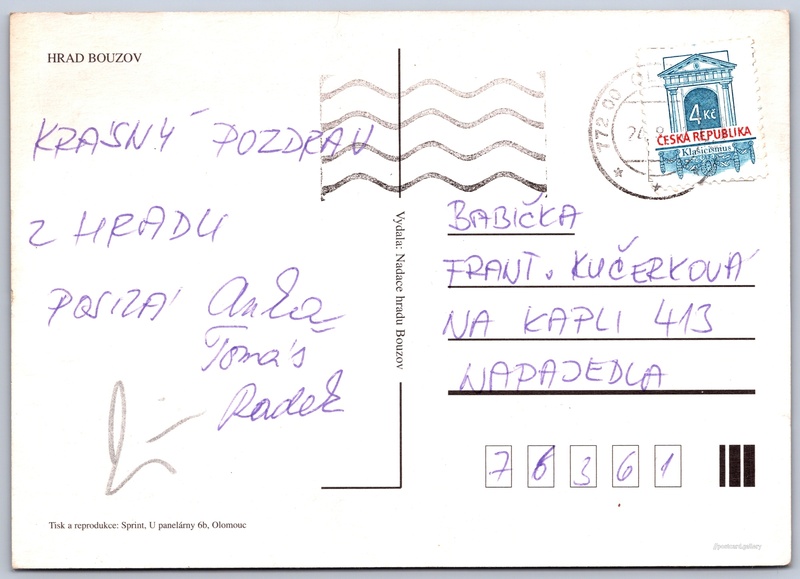 HRAD BOUZOV
KRÁSNÝ POZDRAV
Z HRADU
POSÍLÁ
Tomáš
Radek
Vydala: Nadace hradu Bouzov
772 00 O
4 Kč
ČESKÁ REPUBLIKA
Klasicismus
BABIČKA
FRANT. KUČERKOVÁ
NA KAPLI 413
NAPAJEDLA
7 6 3 6 1
Tisk a reprodukce: Sprint, U panelárny 6b, Olomouc